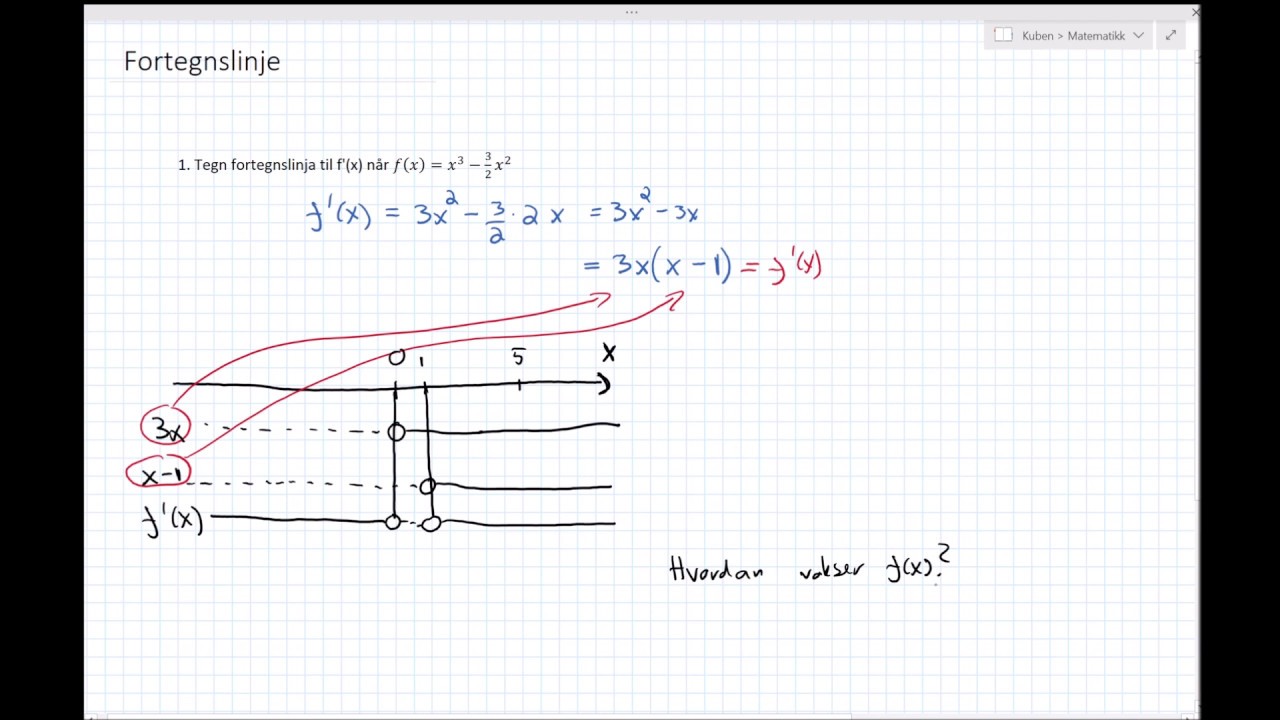 Kuben > Matematikk
Fortegnslinje
1. Tegn fortegnslinja til f'(x) når f(x) = x³ − 3/2 x²
f'(x) = 3x² − 3/2 · 2x = 3x² − 3x
= 3x(x − 1) = f'(x)
0 1 5 x
3x
x−1
f'(x)
Hvordan vokser f(x)?